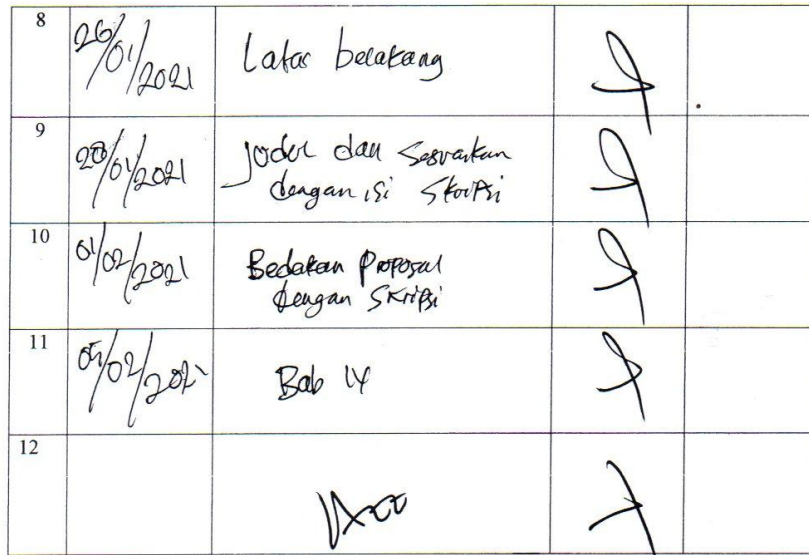 8 26/01/2021 Latar belakang
9 28/01/2021 Judul dan Sesuaikan
dengan isi Skripsi
10 01/02/2021 Bedakan Proposal
dengan Skripsi
11 05/02/2021 Bab IV
12 Acc